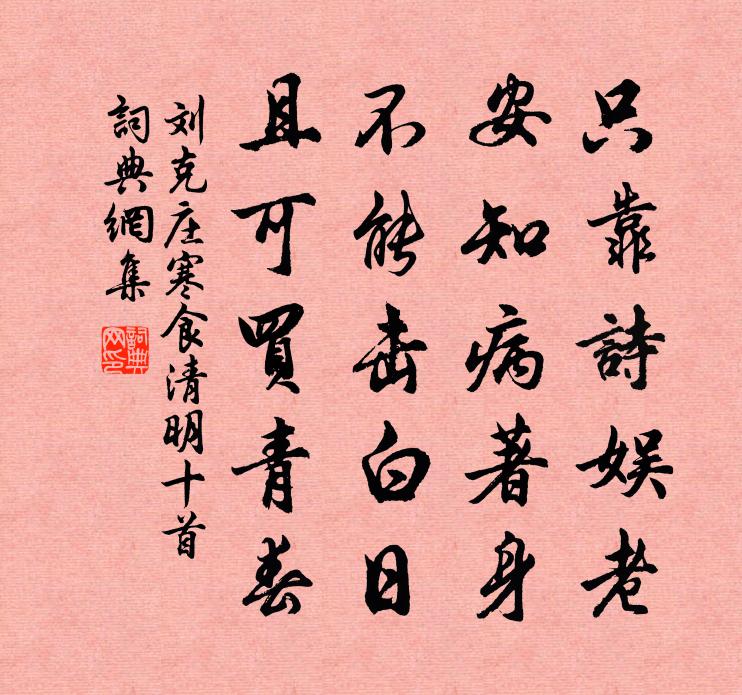 只靠詩娱老
安知病著身
不能击白日
且可買青春
刘克庄寒食清明十首
詞典網集
詞典网印